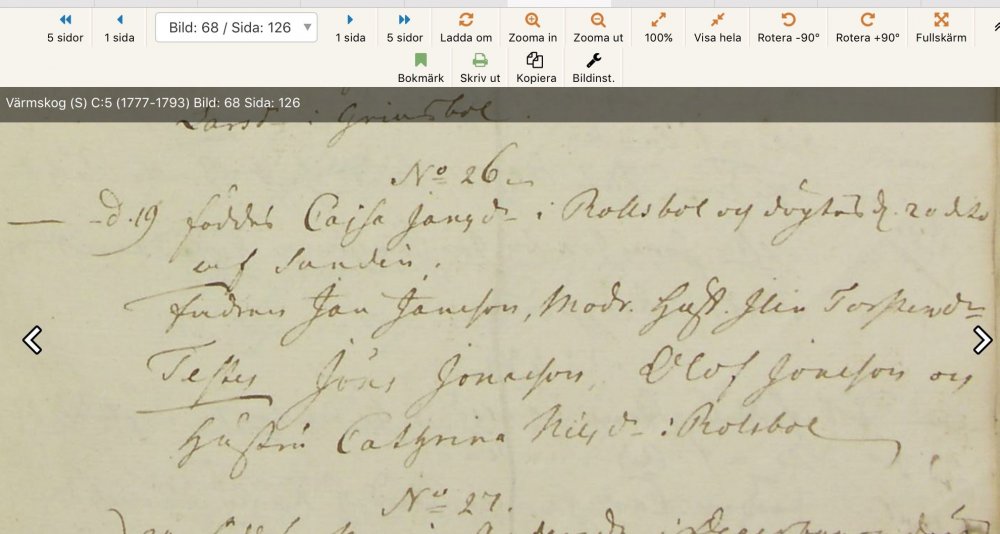 5 sidor
1 sida
Bild: 68 / Sida: 126
1 sida
5 sidor
Ladda om
Zooma in
Zooma ut
100%
Visa hela
Rotera -90°
Rotera +90°
Fullskärm
Bokmärk
Skriv ut
Kopiera
Bildinst.
Värmskog (S) C:5 (1777-1793) Bild: 68 Sida: 126
i Grimsbol
No 26
d. 19 föddes Cajsa Jansdr i Rollsbol och döptes d. 20 dito
af Sundin.
Fadren Jan Janesson, Modr. Hust. Elin Torstensdr
Testes Jöns Jonesson, Olof Jonesson och
Hustru Cathrina Nilsdr i Rolsbol
No 27.